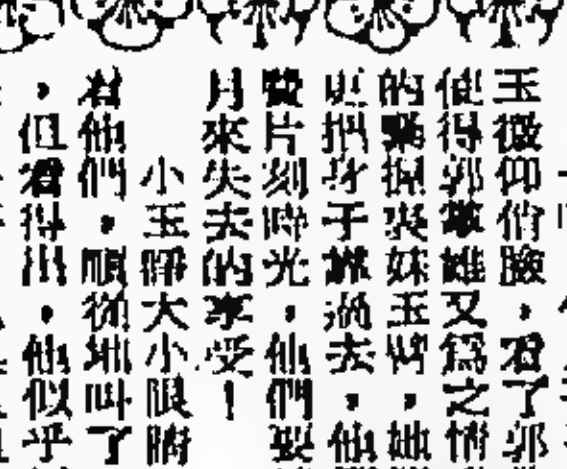 玉微仰俏臉，看了郭
使得郭敬雄又為之情
的妹玉，她
把身于挪過去，他
片刻時光，他們要
月來失去的享受！
小玉睜大小眼睛
看他們，順從地叫了
，但看得出，他似乎